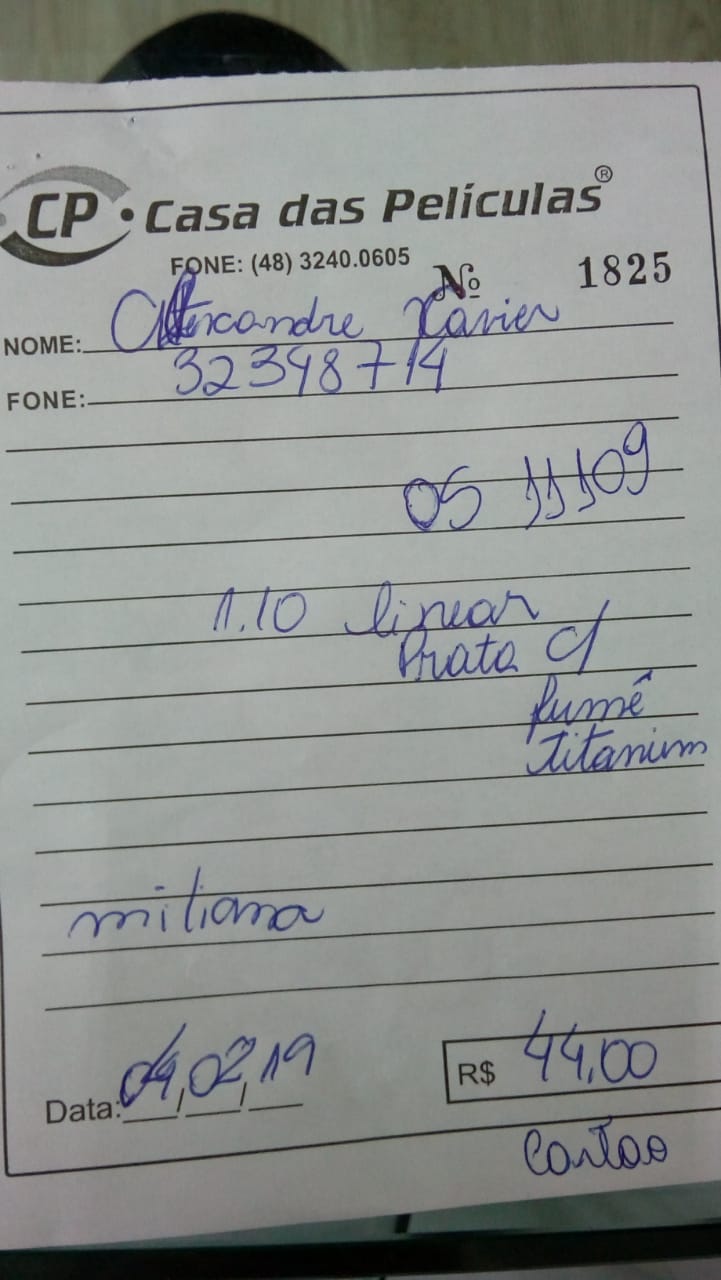 CP • Casa das Películas®
FONE: (48) 3240.0605 Nº 1825
NOME: Alexandre Xavier
FONE: 32348714
OS 11109
1.10 linear
Prata c/
fumê
titanium
miliana
Data: 04/02/19 R$ 44,00
Cartao